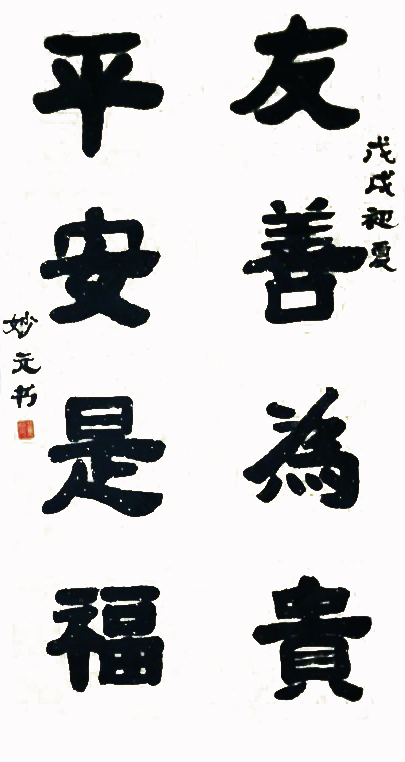 友善為貴
戊戌初夏
平安是福
妙元书